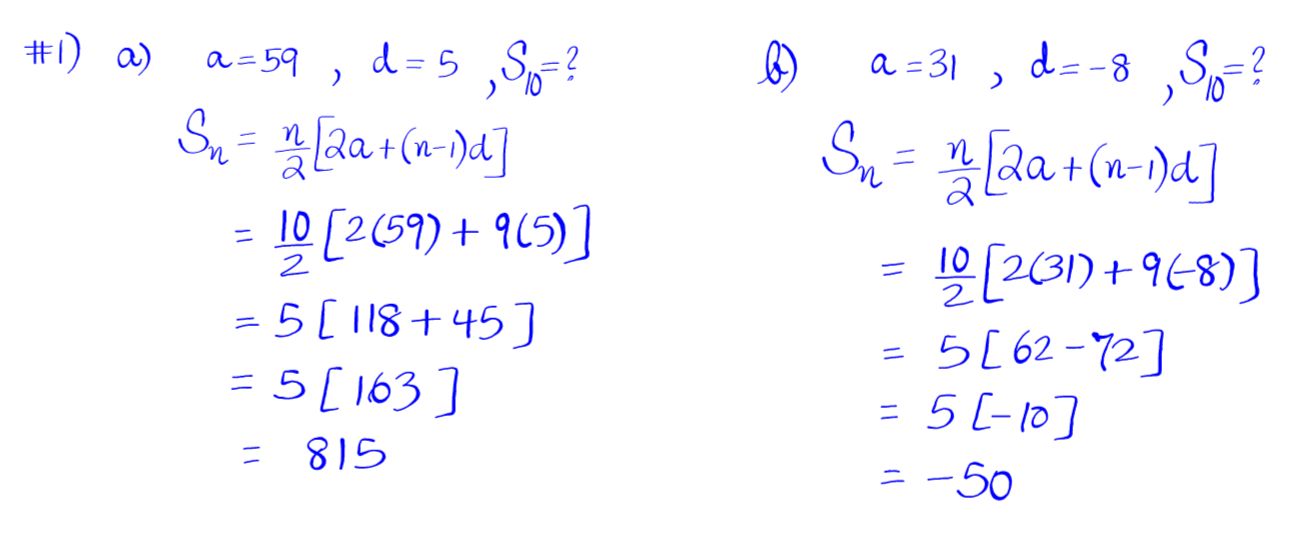 #1) a) a=59 , d=5 , S₁₀=?
Sₙ = n/2 [2a+(n-1)d]
= 10/2 [2(59) + 9(5)]
= 5 [118+45]
= 5 [163]
= 815
b) a=31 , d=-8 , S₁₀=?
Sₙ = n/2 [2a+(n-1)d]
= 10/2 [2(31)+9(-8)]
= 5 [62-72]
= 5 [-10]
= -50